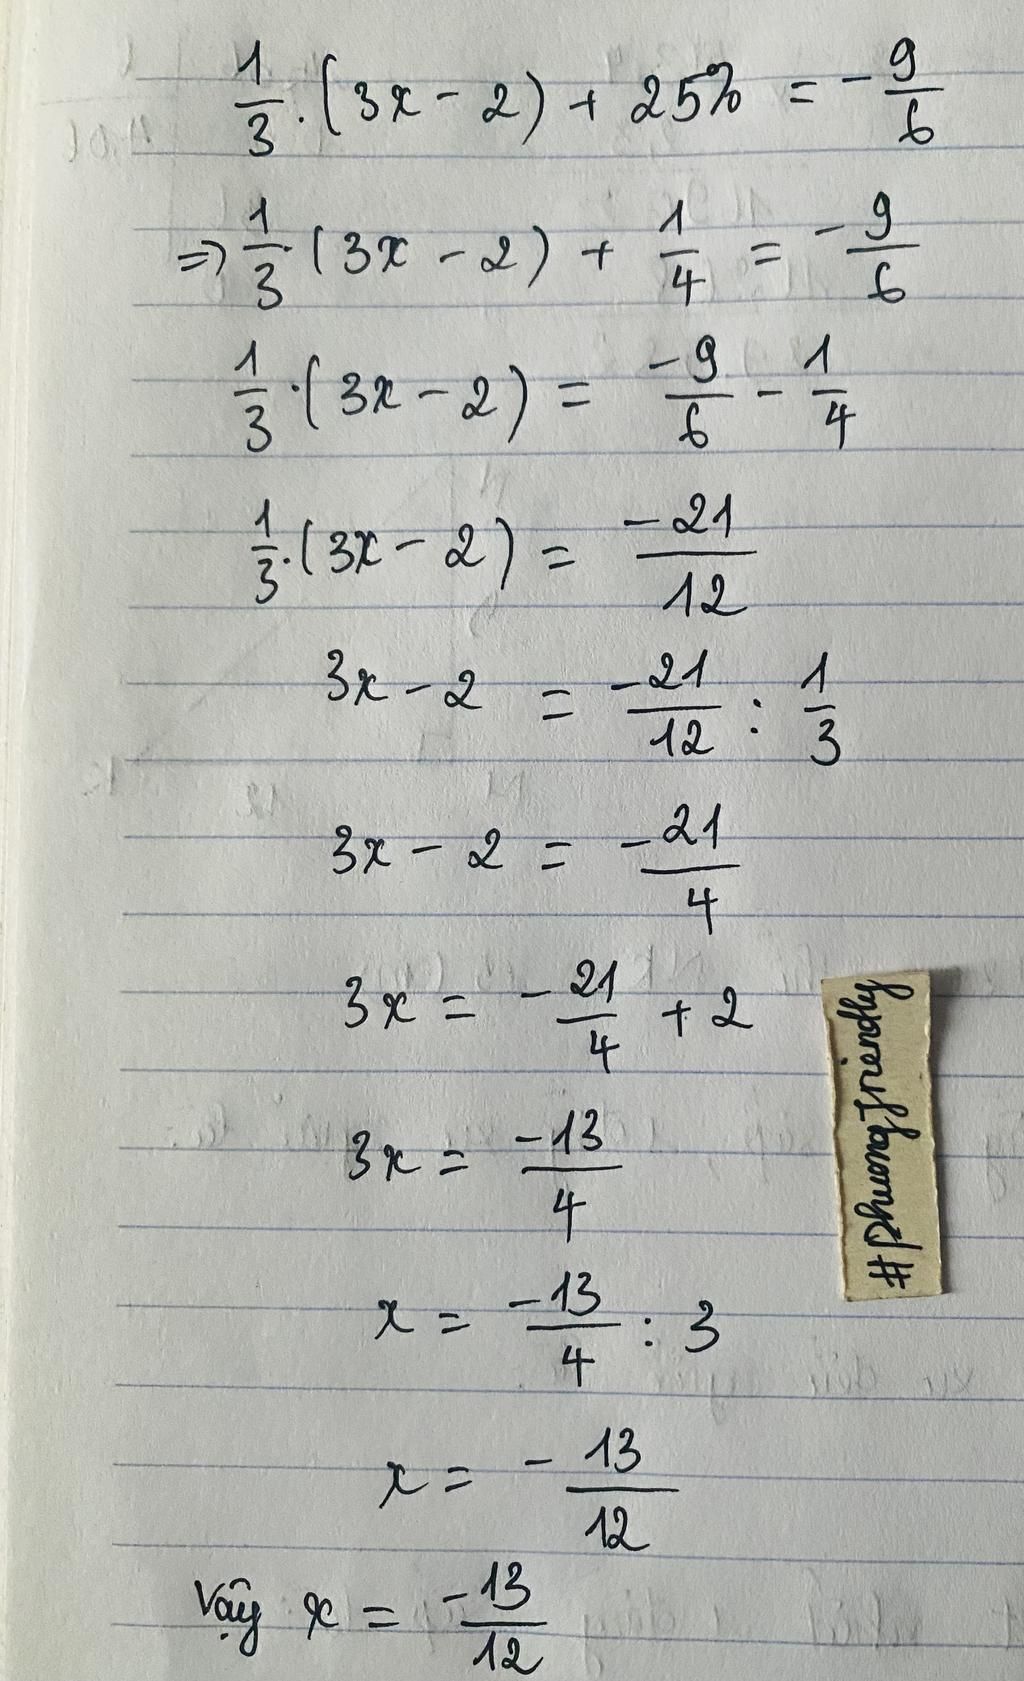 1/3 . (3x - 2) + 25% = -9/6
=> 1/3 . (3x - 2) + 1/4 = -9/6
1/3 . (3x - 2) = -9/6 - 1/4
1/3 . (3x - 2) = -21/12
3x - 2 = -21/12 : 1/3
3x - 2 = -21/4
3x = -21/4 + 2
3x = -13/4
x = -13/4 : 3
x = -13/12
Vậy x = -13/12
#PhuongFriendly